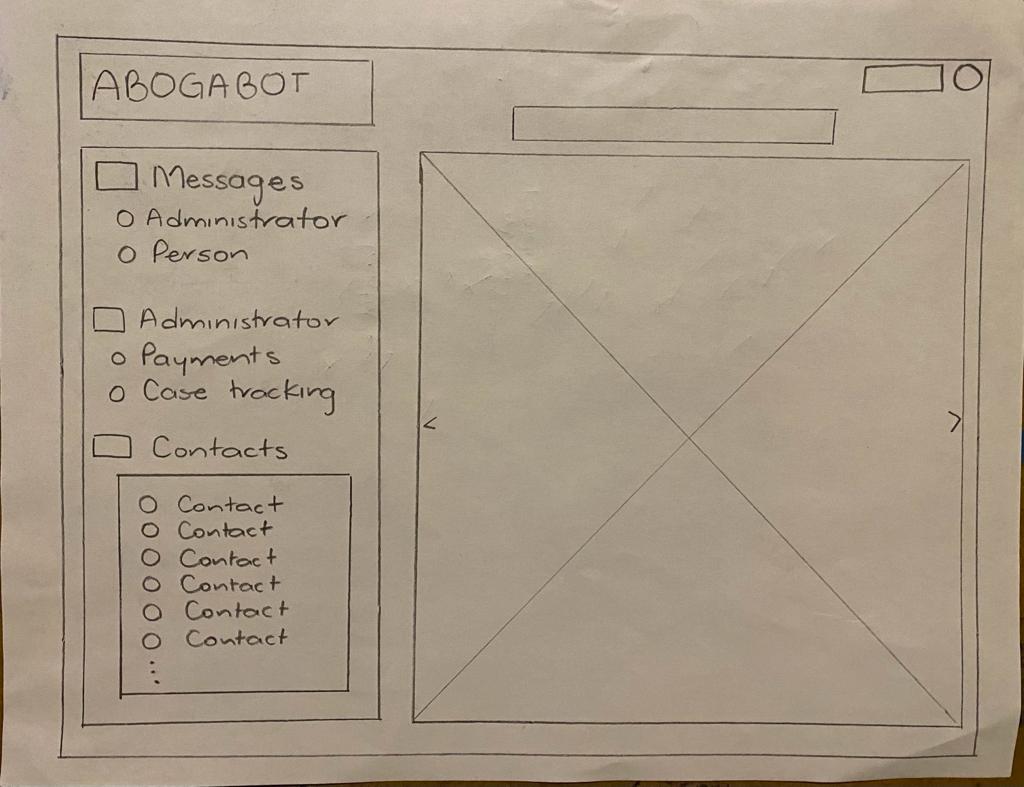 ABOGABOT
Messages
Administrator
Person
Administrator
Payments
Case tracking
Contacts
Contact
Contact
Contact
Contact
Contact
Contact
...
<
>